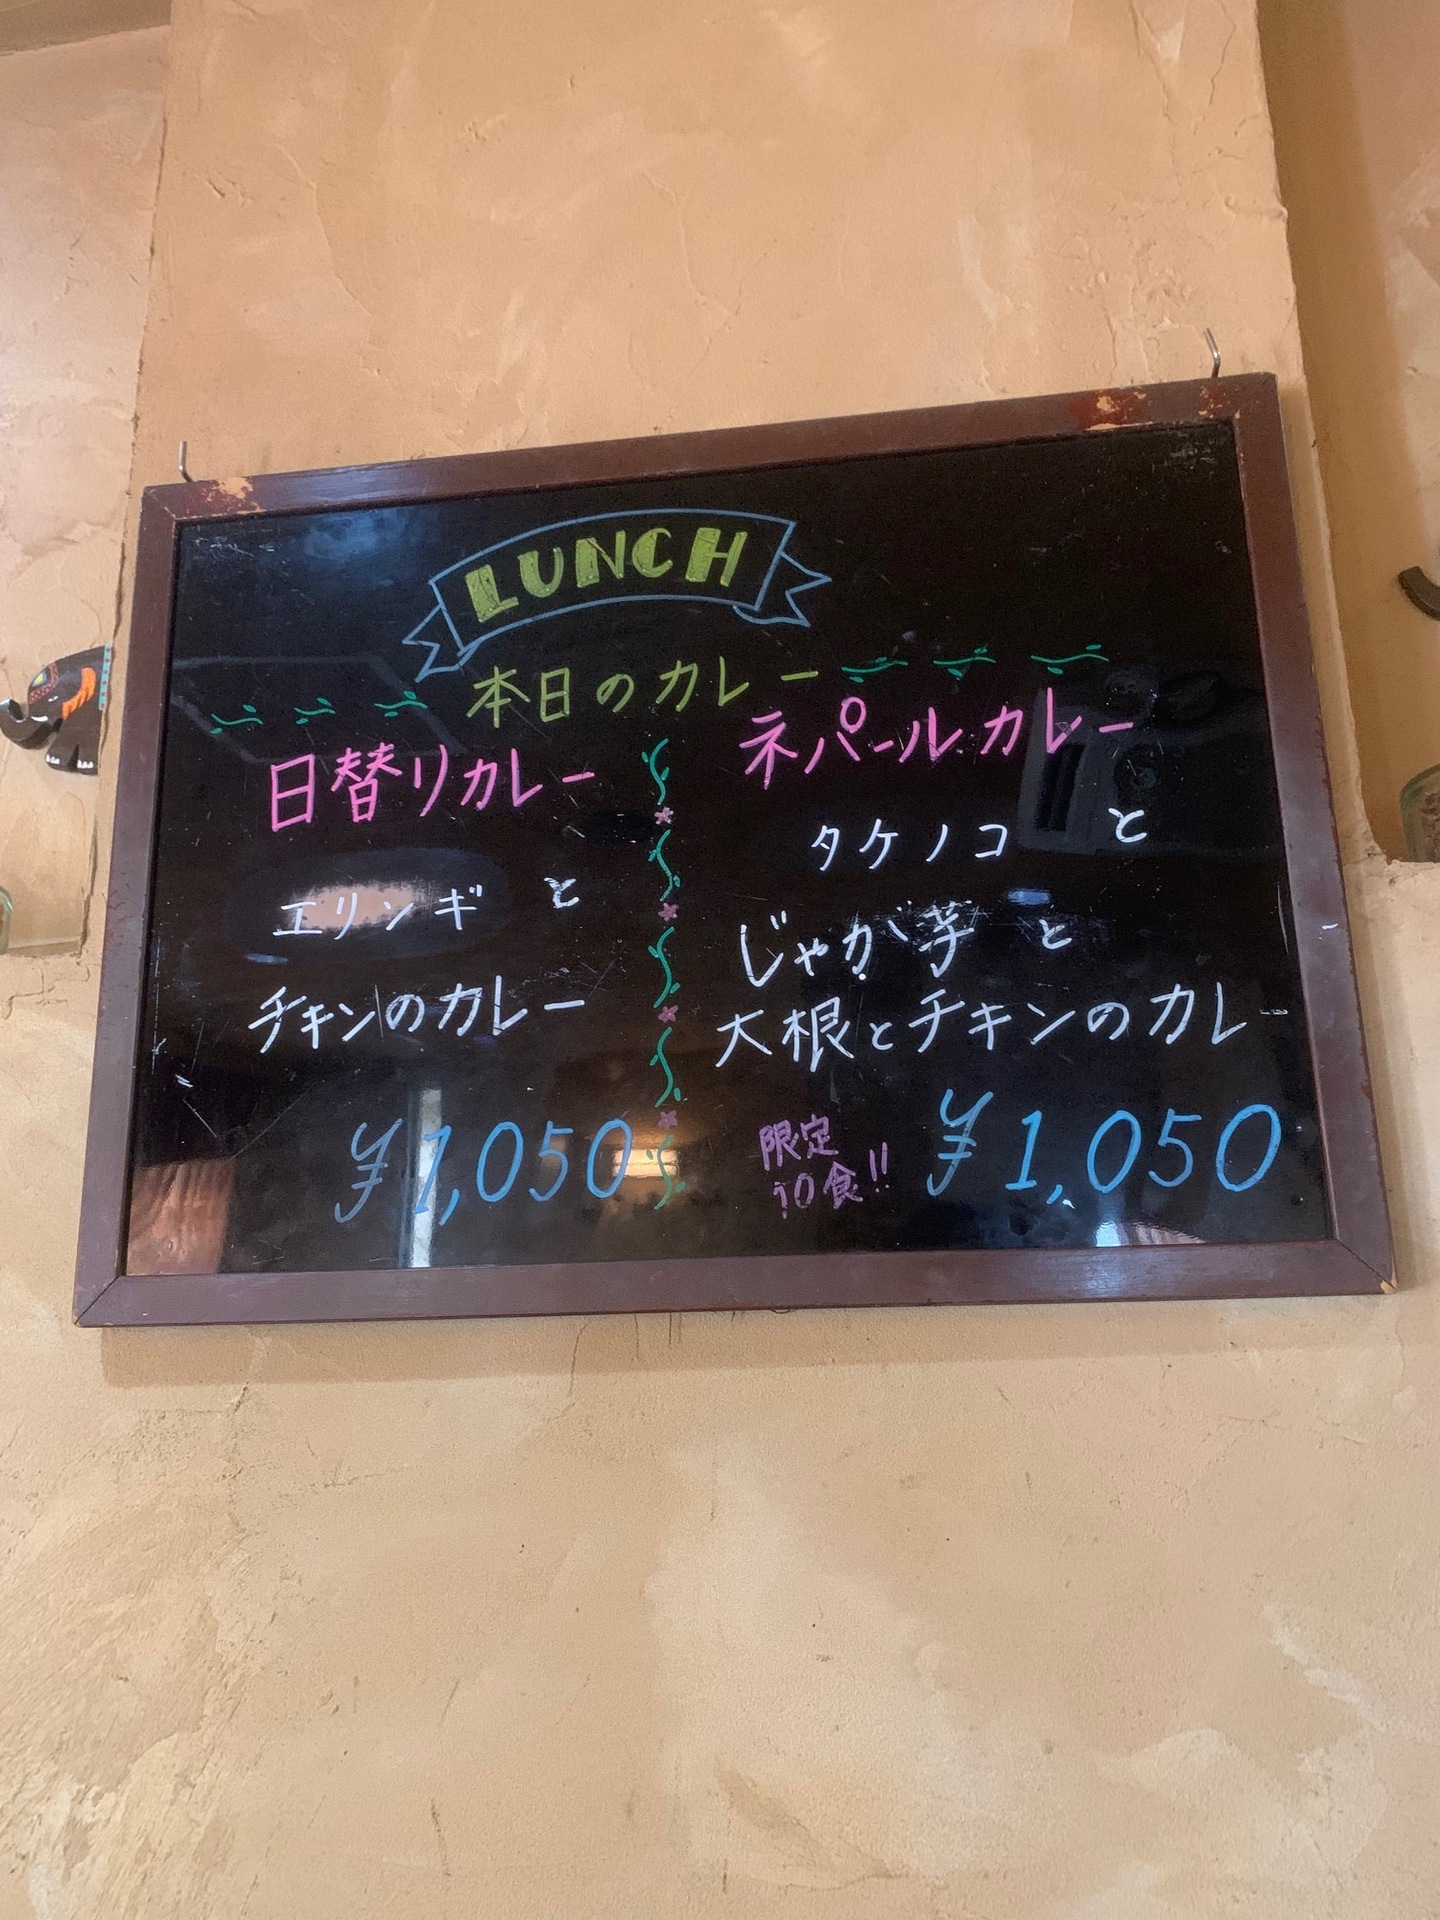 LUNCH
本日のカレー
日替りカレー
エリンギ と
チキンのカレー
¥1,050
ネパールカレー
タケノコ と
じゃが芋 と
大根とチキンのカレー
限定
10食!!
¥1,050